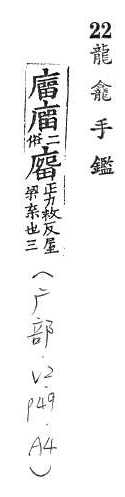 22 龍龕手鑑
廇廇二俗廇正力救反屋梁奈也三
(广部·V2·P49·A4)